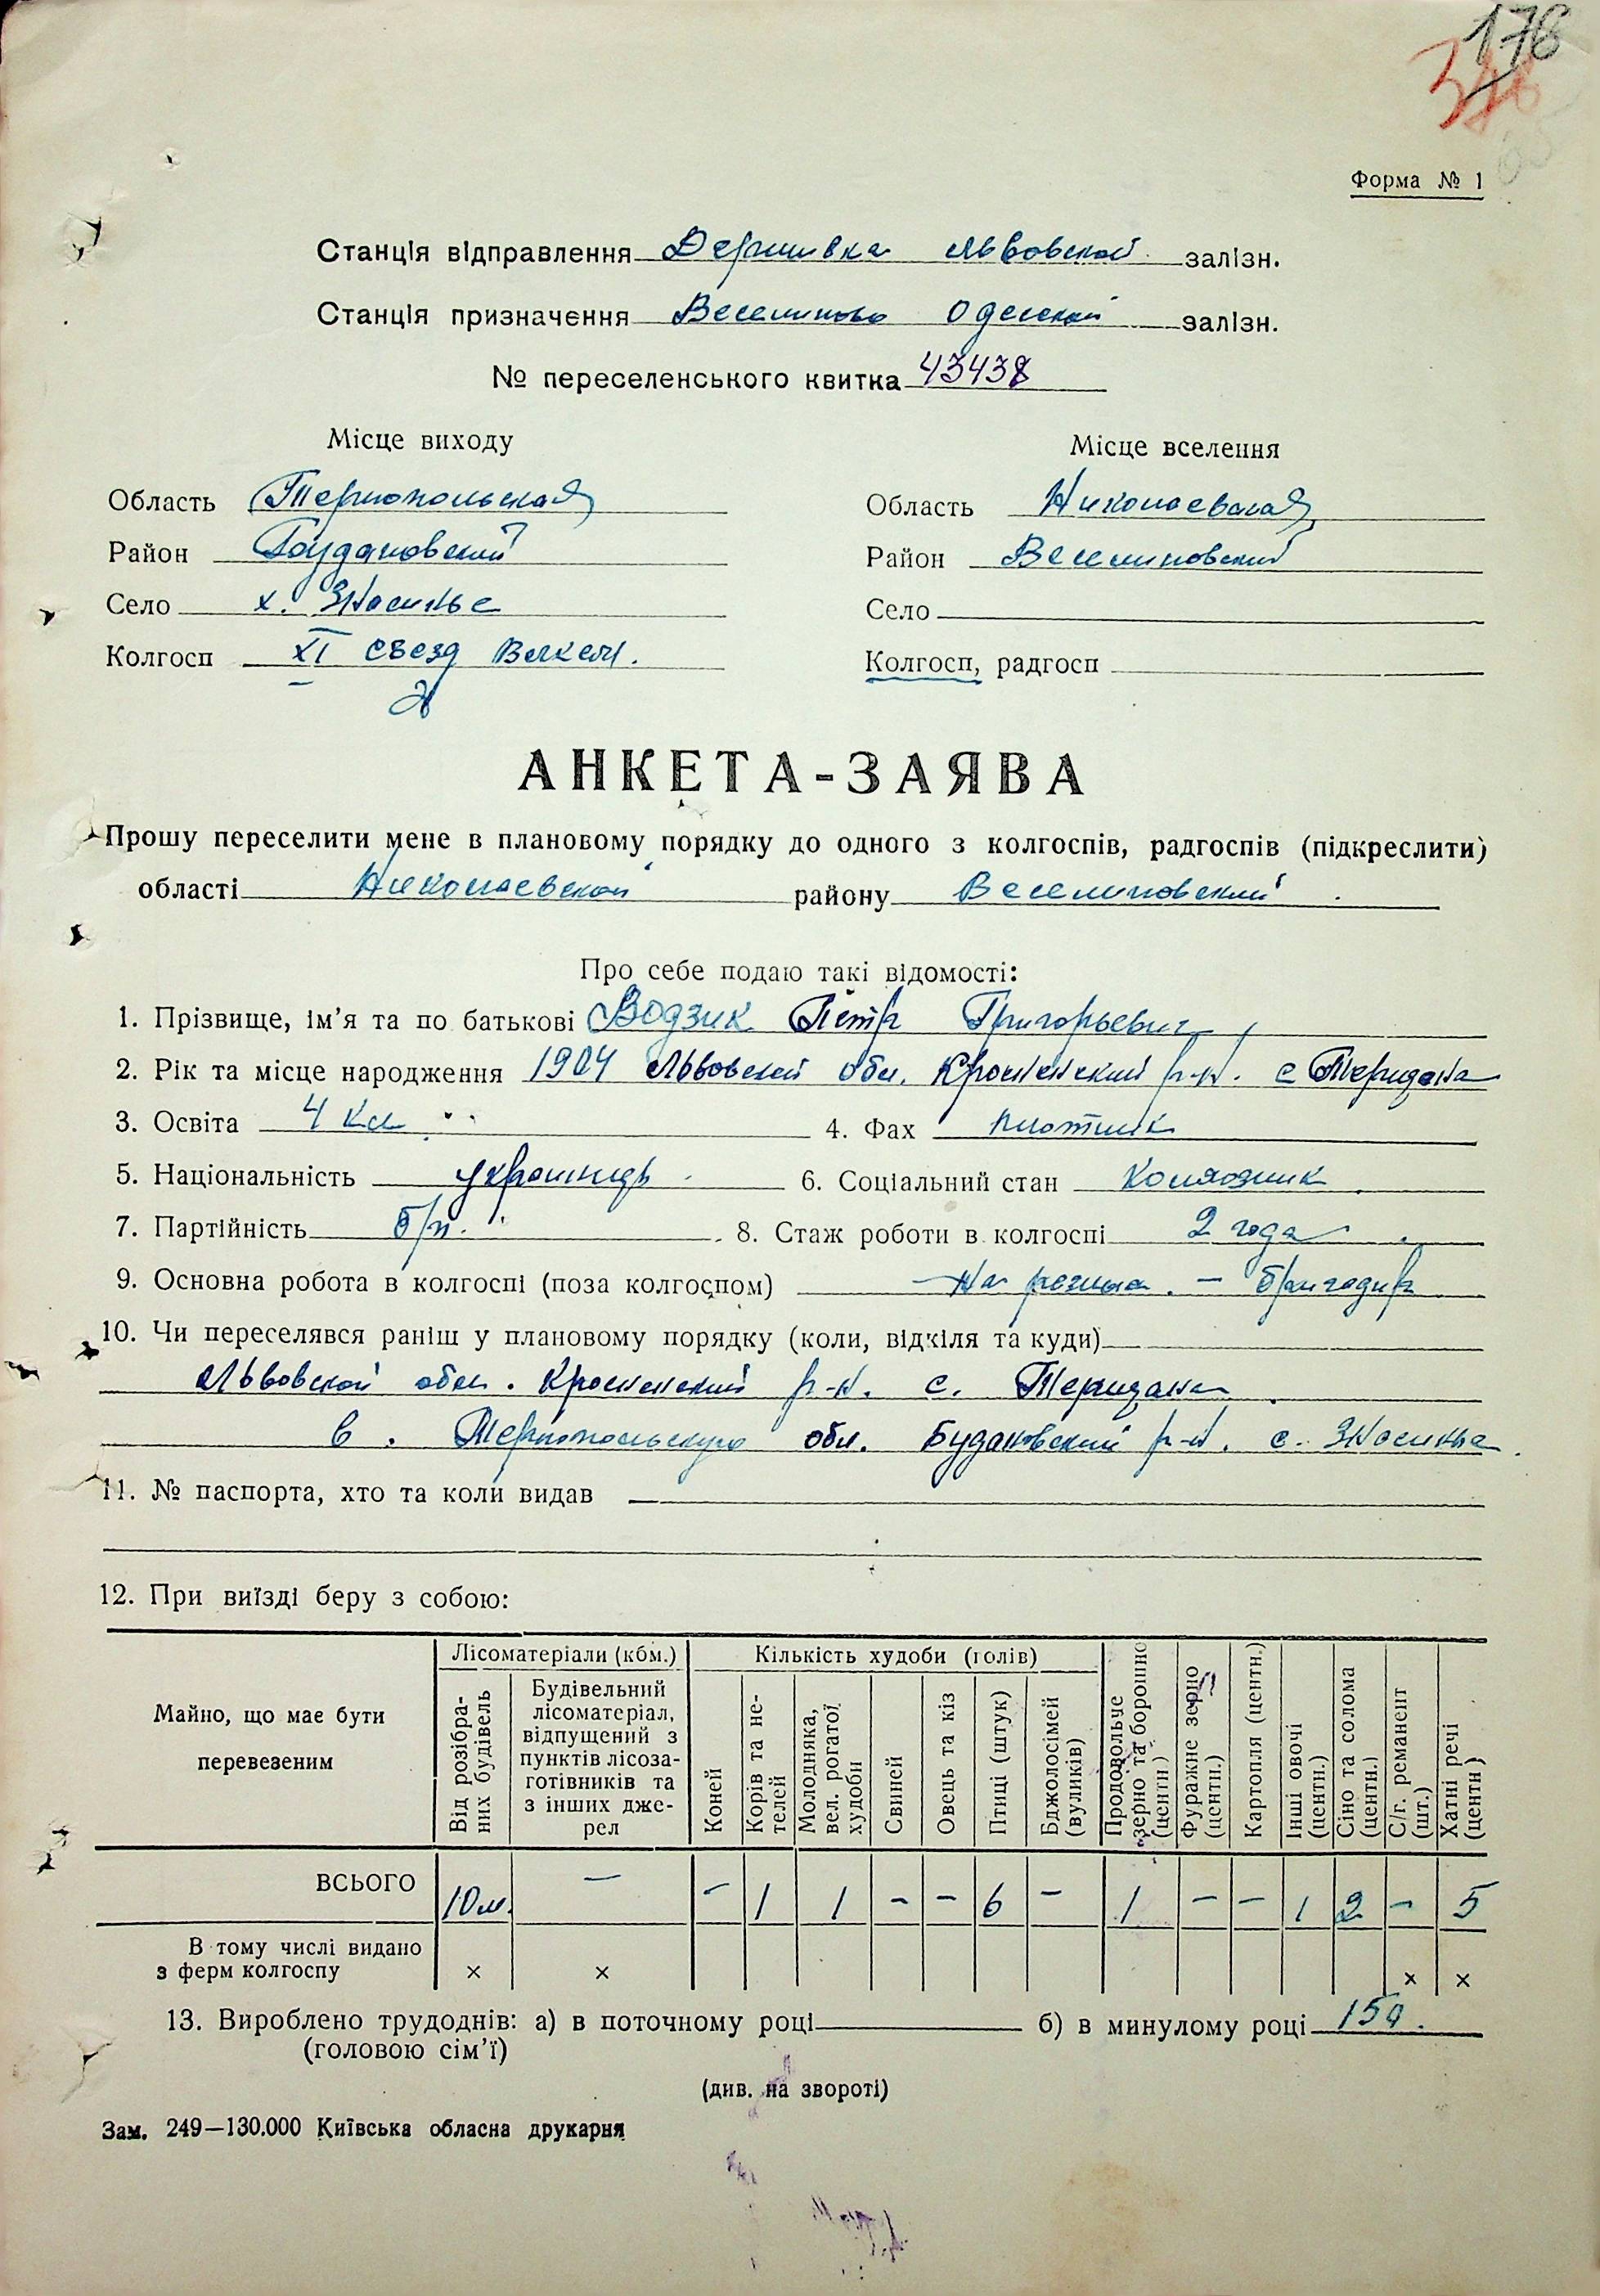 178
Форма № 1
Станція відправлення Деришвка Львовской залізн.
Станція призначення Веселиново Одесской залізн.
№ переселенського квитка 43438
Місце виходу Місце вселення
Область Тернопольская Область Николаевская
Район Будановский Район Веселиновский
Село х. Село
Колгосп XI съезд Колгосп, радгосп
АНКЕТА-ЗАЯВА
Прошу переселити мене в плановому порядку до одного з колгоспів, радгоспів (підкреслити)
області Николаевской району Веселиновский
Про себе подаю такі відомості:
1. Прізвище, ім'я та по батькові Водзик Петр Григорьевич
2. Рік та місце народження 1904 Львовской обл. Кросненский р-н. с
3. Освіта 4 кл 4. Фах плотник
5. Національність украинец 6. Соціальний стан колхозник
7. Партійність б/п. 8. Стаж роботи в колгоспі 2 года
9. Основна робота в колгоспі (поза колгоспом) — бригадир
10. Чи переселявся раніш у плановому порядку (коли, відкіля та куди)
Львовской обл. Кросненский р-н. с.
в. Тернопольскую обл. Будановский р-н. с.
11. № паспорта, хто та коли видав
12. При виїзді беру з собою:
Майно, що має бути перевезеним
Лісоматеріали (кбм.) Кількість худоби (голів)
Від розібраних будівель
Будівельний лісоматеріал, відпущений з пунктів лісозаготівників та з інших джерел
Коней
Корів та нетелей
Молодняка, вел. рогатої худоби
Свиней
Овець та кіз
Птиці (штук)
Бджолосімей (вуликів)
Продовольче зерно та борошно (центн)
Фуражне зерно (центн.)
Картопля (центн.)
Інші овочі (центн.)
Сіно та солома (центн.)
С/г. реманент (шт.)
Хатні речі (центн)
ВСЬОГО 10м. — – 1 1 – – 6 – 1 – – 1 2 – 5
В тому числі видано
з ферм колгоспу × × × ×
13. Вироблено трудоднів: а) в поточному році б) в минулому році 150.
(головою сім'ї)
(див. на звороті)
Зам. 249—130.000 Київська обласна друкарня